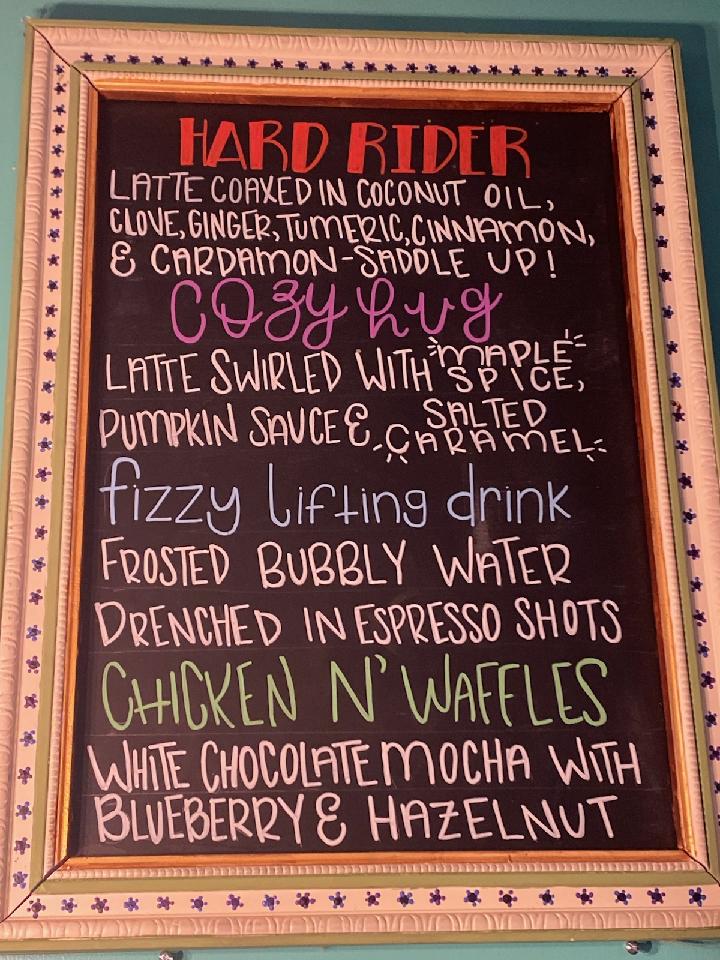 HARD RIDER
LATTE COAXED IN COCONUT OIL,
CLOVE, GINGER, TUMERIC, CINNAMON,
& CARDAMON-SADDLE UP!
cozy hug
LATTE SWIRLED WITH MAPLE SPICE,
PUMPKIN SAUCE & SALTED CARAMEL
fizzy lifting drink
FROSTED BUBBLY WATER
DRENCHED IN ESPRESSO SHOTS
CHICKEN N' WAFFLES
WHITE CHOCOLATE MOCHA WITH
BLUEBERRY & HAZELNUT